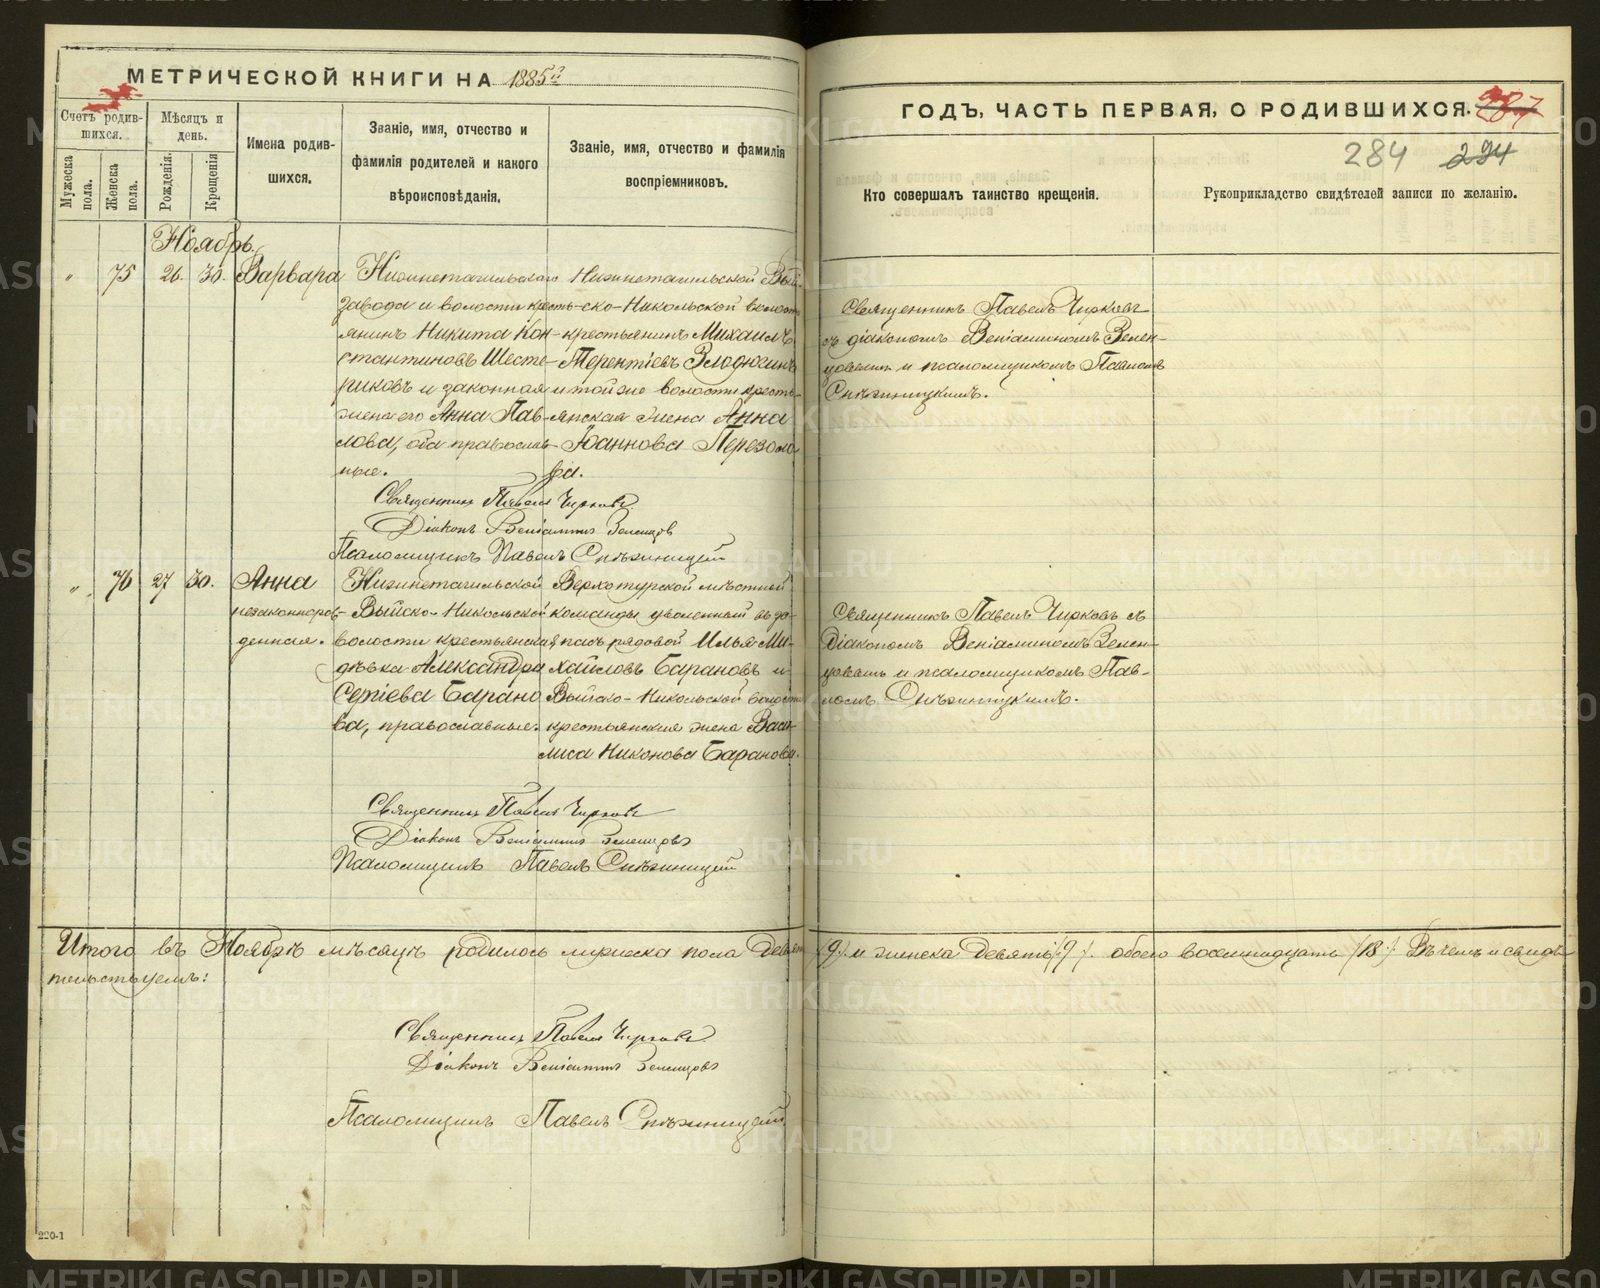 МЕТРИЧЕСКОЙ КНИГИ НА 1885й
ГОДЪ, ЧАСТЬ ПЕРВАЯ, О РОДИВШИХСЯ.
287
284 294
Счетъ родив-
шихся.
Мужеска пола.
Женска пола.
Мѣсяцъ и день.
Рожденія.
Крещенія
Имена родив-
шихся.
Званіе, имя, отчество и
фамилія родителей и какого
вѣроисповѣданія.
Званіе, имя, отчество и фамилія
воспріемниковъ.
Кто совершалъ таинство крещенія.
Рукоприкладство свидѣтелей записи по желанію.
Ноябрь.
" 75 26. 30. Варвара
Нижнетагильскаго
завода и волости кресть-
янинъ Никита Кон-
стантиновъ Шесте-
риковъ и законная
жена его Анна Пав-
лова, оба православ-
ные.
Нижнетагильской Вый-
ско-Никольской волости
крестьянинъ Михаилъ
Терентіевъ Злодюгинъ
и той же волости кресть-
янская жена Анна
Іоаннова Перезоло-
ва.
Священникъ Павелъ Чирковъ
съ діакономъ Веніаминомъ Зелен-
цовымъ и псаломщикомъ Павломъ
Снѣжницкимъ.
Священникъ Павелъ Чирковъ
Діаконъ Веніаминъ Зеленцов
Псаломщикъ Павелъ Снѣжницкій
" 76 27 30. Анна
незаконнорож-
денная.
Нижнетагильской
Выйско-Никольской
волости крестьянская
дѣвка Александра
Сергіева Барано
ва, православные.
Верхотурской мѣстной
команды уволенный въ за-
пасъ рядовой Илья Ми-
хайловъ Барановъ и
Выйско-Никольской волости
крестьянская жена Васи-
лиса Никонова Баранова.
Священникъ Павелъ Чирковъ съ
Діакономъ Веніаминомъ Зелен-
цовымъ и псаломщикомъ Пав-
ломъ Снѣжницкимъ.
Священникъ Павелъ Чирковъ
Діаконъ Веніаминъ Зеленцовъ
Псаломщикъ Павелъ Снѣжницкій
Итого въ Ноябрѣ мѣсяцѣ родилось мужеска пола Девять (9) и женска Девять (9). обоего восемнадцать (18) Въ чемъ и свидѣ-
тельствуемъ:
Священникъ Павелъ Чирковъ
Діаконъ Веніаминъ Зеленцовъ
Псаломщикъ Павелъ Снѣжницкій
220-1
METRIKI.GASO-URAL.RU